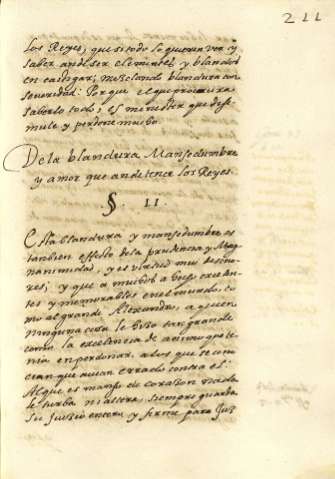 211
los Reyes, que si todo lo quieren ver y
saber an de ser clementes, y blandos
en castigar, mezclando blandura con
severidad: Porque el que procura
saberlo todo, es menester que dissi
mule y perdone mucho.
De la blandura Mansedumbre
y amor que an de tener los Reyes.
§. II.
Esta blandura y mansedumbre es
tambien effecto de la prudencia y Mag
nanimidad, y es virtud muy de seño
res; y que a muchos a hecho excelen
tes y memorables en el mundo, co
mo al grande Alexandro, a quien
ninguna cosa le hizo tan grande
como la excelencia de animo que te
nia en perdonar, a los que te cono
cian que avian errado contra el:
Al que es manso de corazon nada
le turba ni altera, siempre guarda
su juizio entero y firme para juz